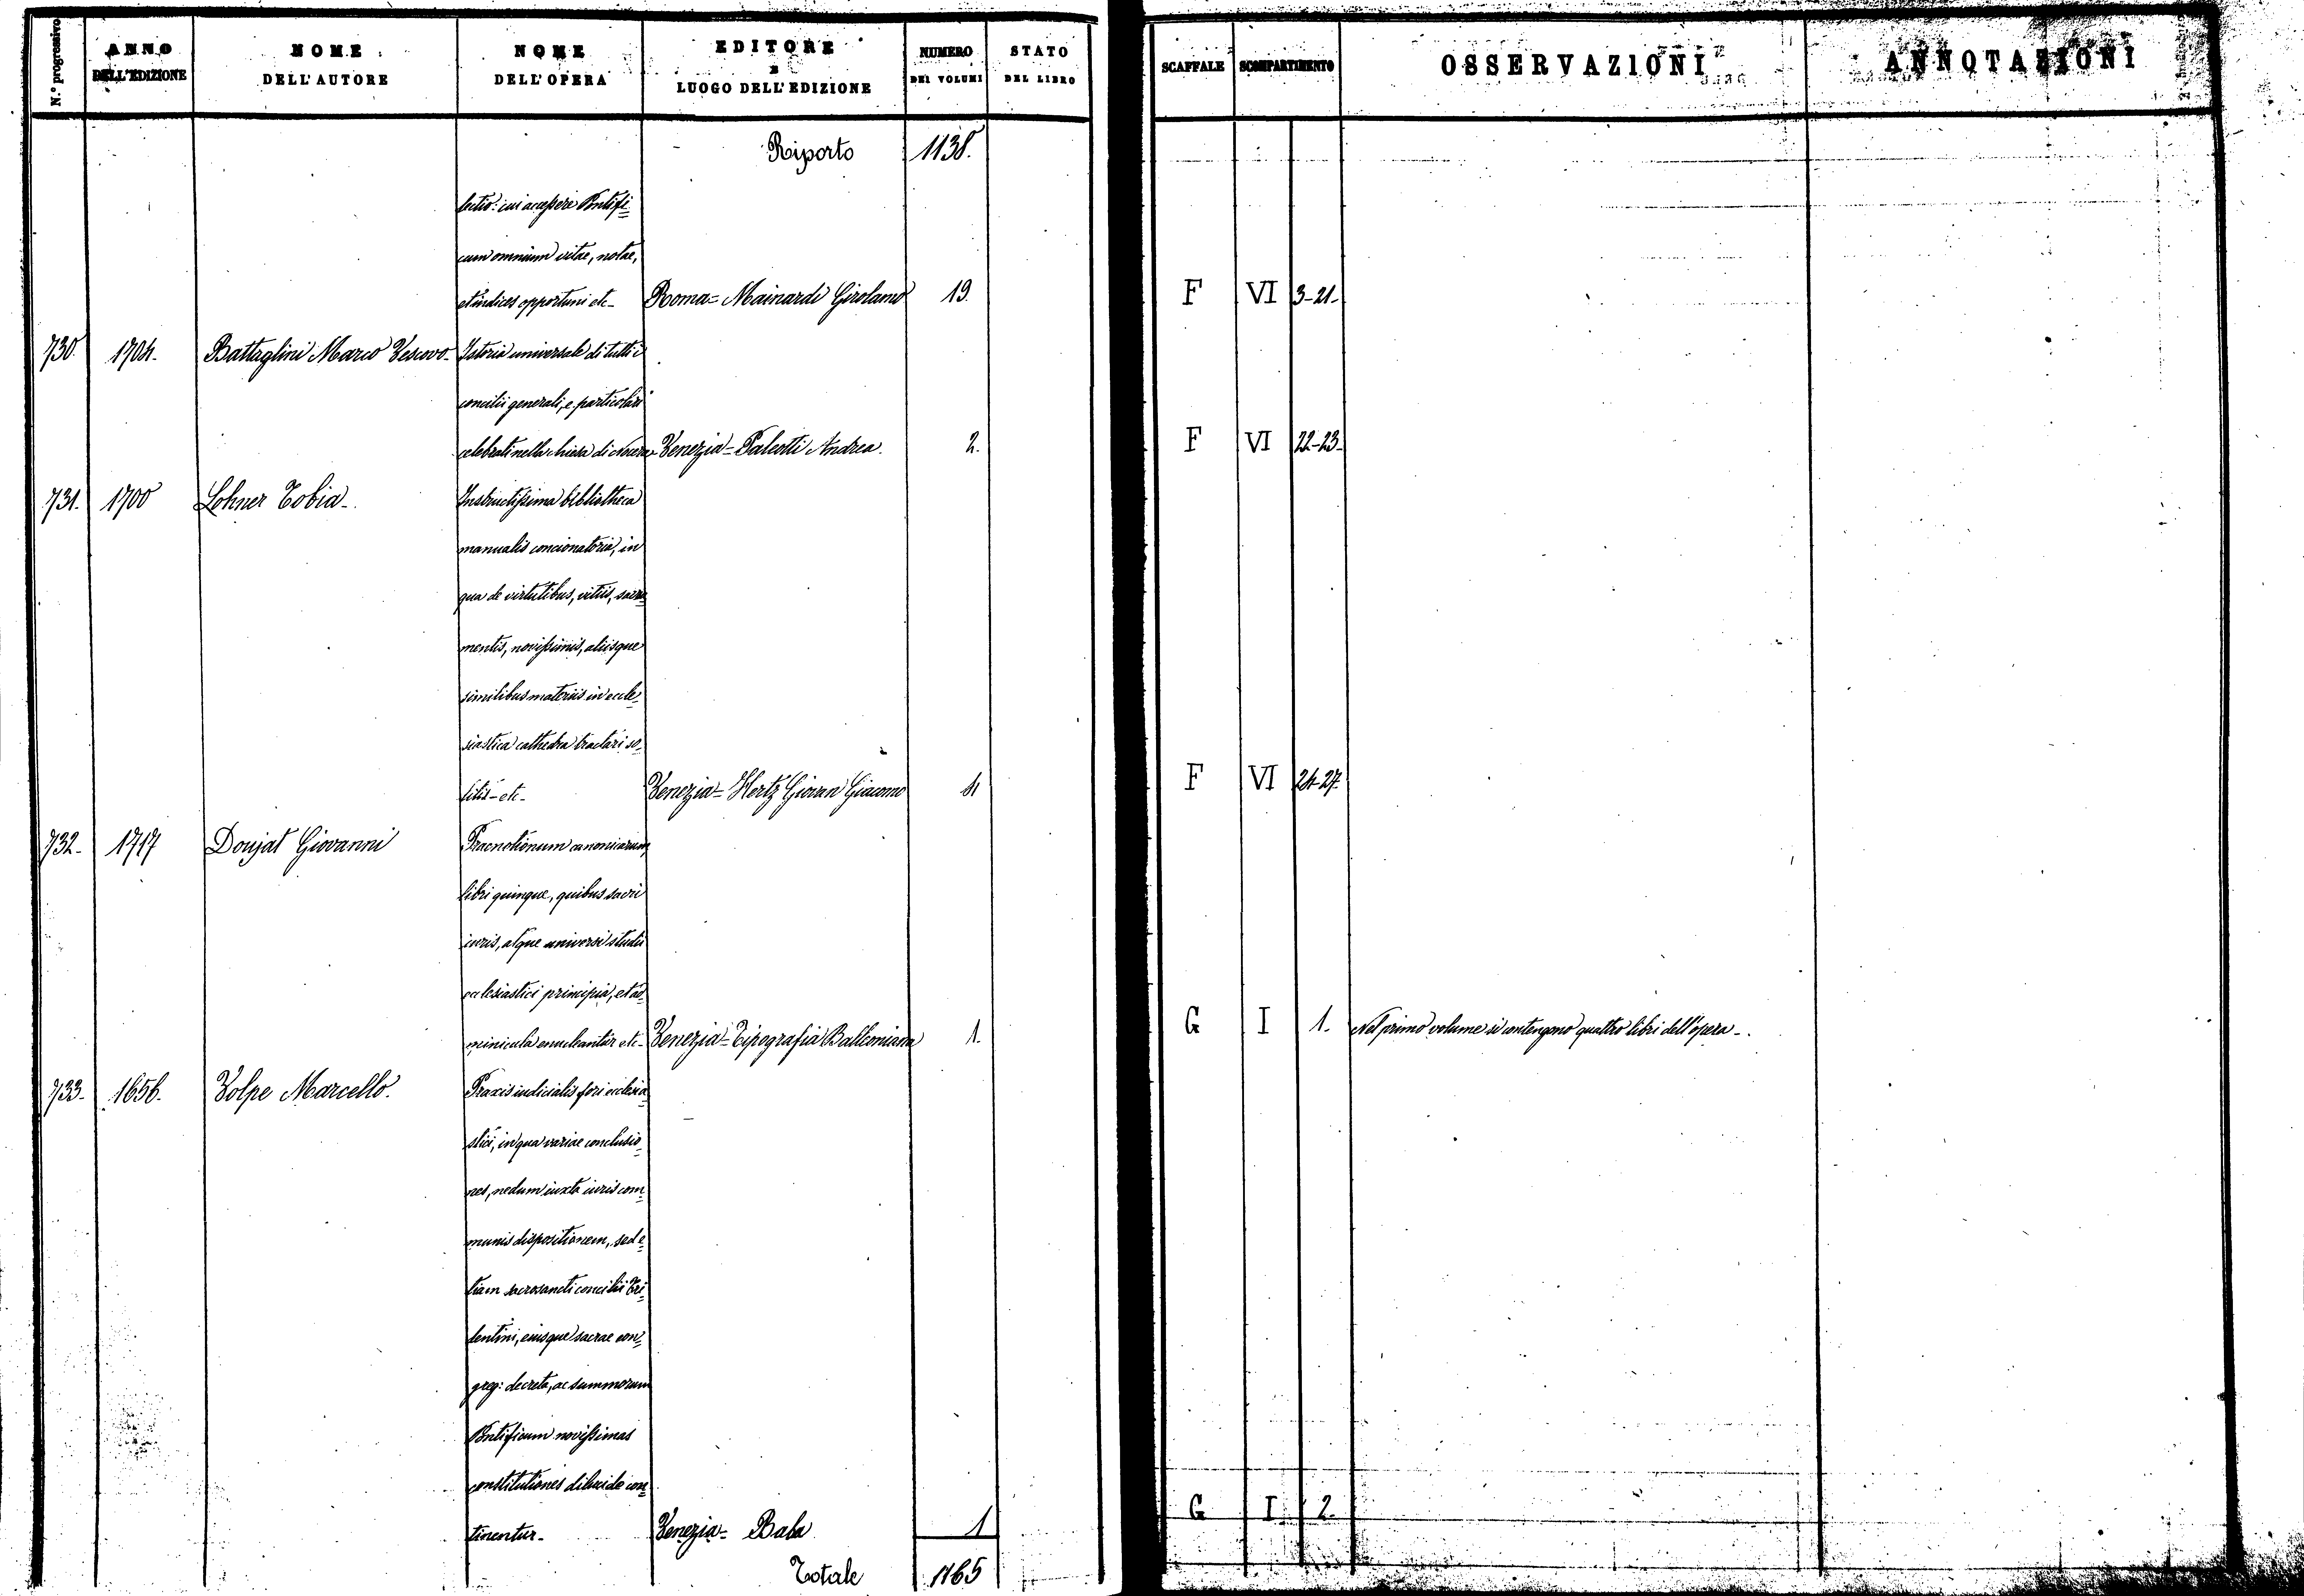 N.º progressivo | ANNO DELL'EDIZIONE | NOME DELL'AUTORE | NOME DELL'OPERA | EDITORE E LUOGO DELL'EDIZIONE | NUMERO DEI VOLUMI | STATO DEL LIBRO | SCAFFALE | SCOMPARTIMENTO | OSSERVAZIONI | ANNOTAZIONI
Riporto 1138.
lectio: cui accessere Pontifi=
cum omnium vitae, notae,
et indices opportuni etc- Roma= Mainardi Girolamo 19. F VI 3-21-
730. 1704. Battaglini Marco Vescovo- Istoria universale di tutti i
concilii generali, e particolari
celebrati nella chiesa di Nocera- Venezia= Paleotti Andrea. 2. F VI 22-23-
731. 1700 Lohner Tobia-. Instructissima bibliotheca
manualis concionatoria, in
qua de virtutibus, vitiis, sacra=
mentis, novissimis, aliisque
similibus materiis in eccle=
siastica cathedra tractari so=
litis- etc- Venezia= Hertz Giovan Giacomo 4 F VI 24-27.
732- 1717 Doujat Giovanni Praenotionum canonicarum
libri quinque, quibus sacri
iuris, atque universi studii
ecclesiastici principia, et ad=
minicula enucleantur etc- Venezia= Tipografia Balleoniana 1. G I 1. Nel primo volume si contengono quattro libri dell'opera-.
733- 1656. Volpe Marcello. Praxis iudicialis fori ecclesia=
stici, in qua variae conclusio=
nes, nedum iuxta iuris com=
munis dispositionem, sed e=
tiam sacrosancti concilii Tri=
dentini, eiusque sacrae con=
greg: decreta, ac summorum
Pontificum novissimas
constitutiones dilucide con=
tinentur- Venezia= Baba 1 G I 2-
Totale 1165